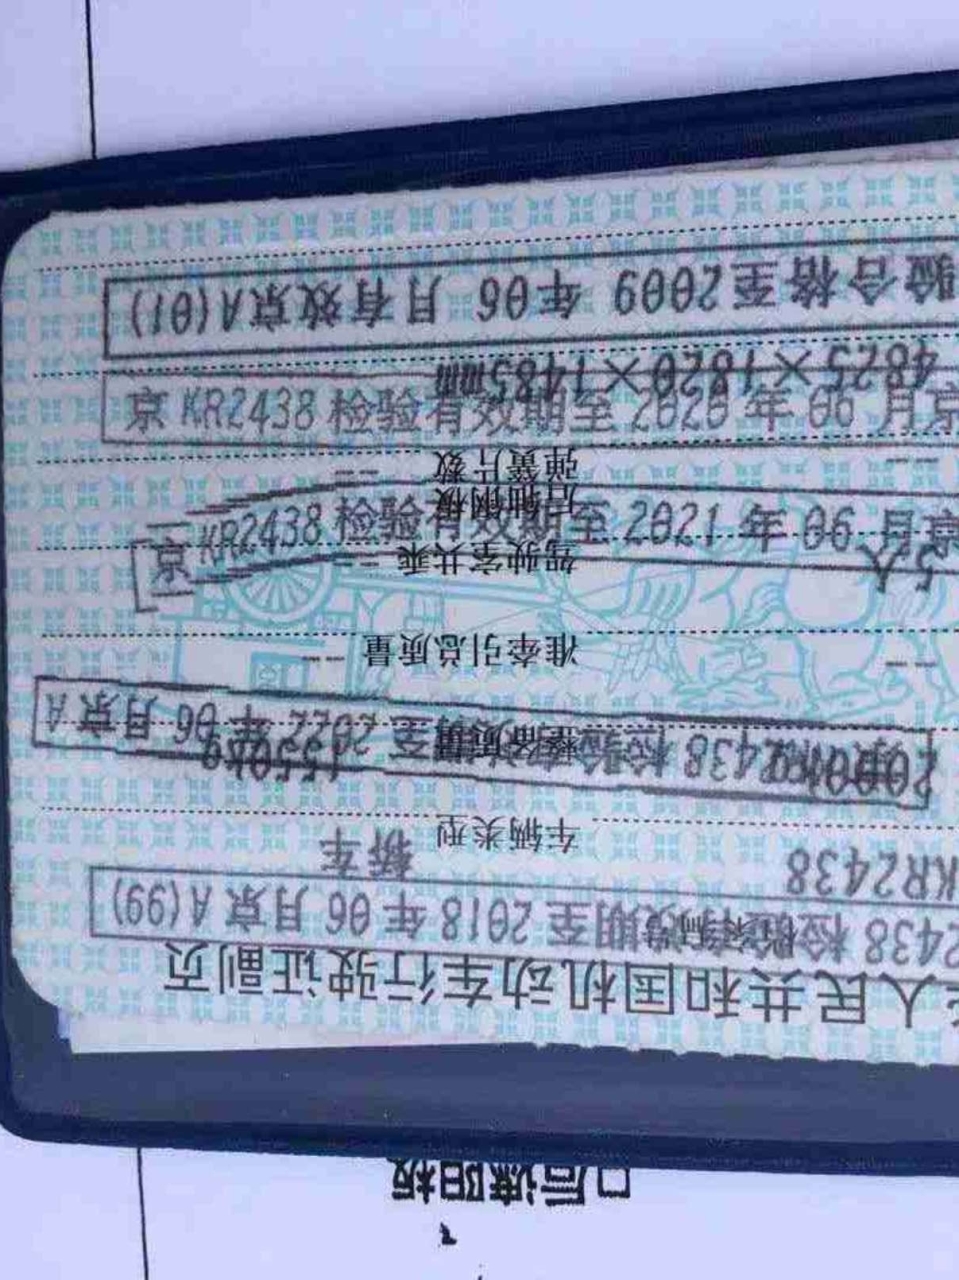 □后遮阳板
人民共和国机动车行驶证副页
2438 检验有效期至2018 年 06 月京A(99)
KR2438 车辆类型 轿车
整备质量 1550kg
KR2438 检验有效期至 2022 年 06 月京A
-- 准牵引总质量 --
5人 驾驶室共乘 --
京 KR2438 检验有效期至 2021 年 06 月京
后轴钢板
-- 弹簧片数 --
京 KR2438 检验有效期至 2020 年 06 月京
4825×1820×1485mm
验合格至2009 年06 月有效京A(01)